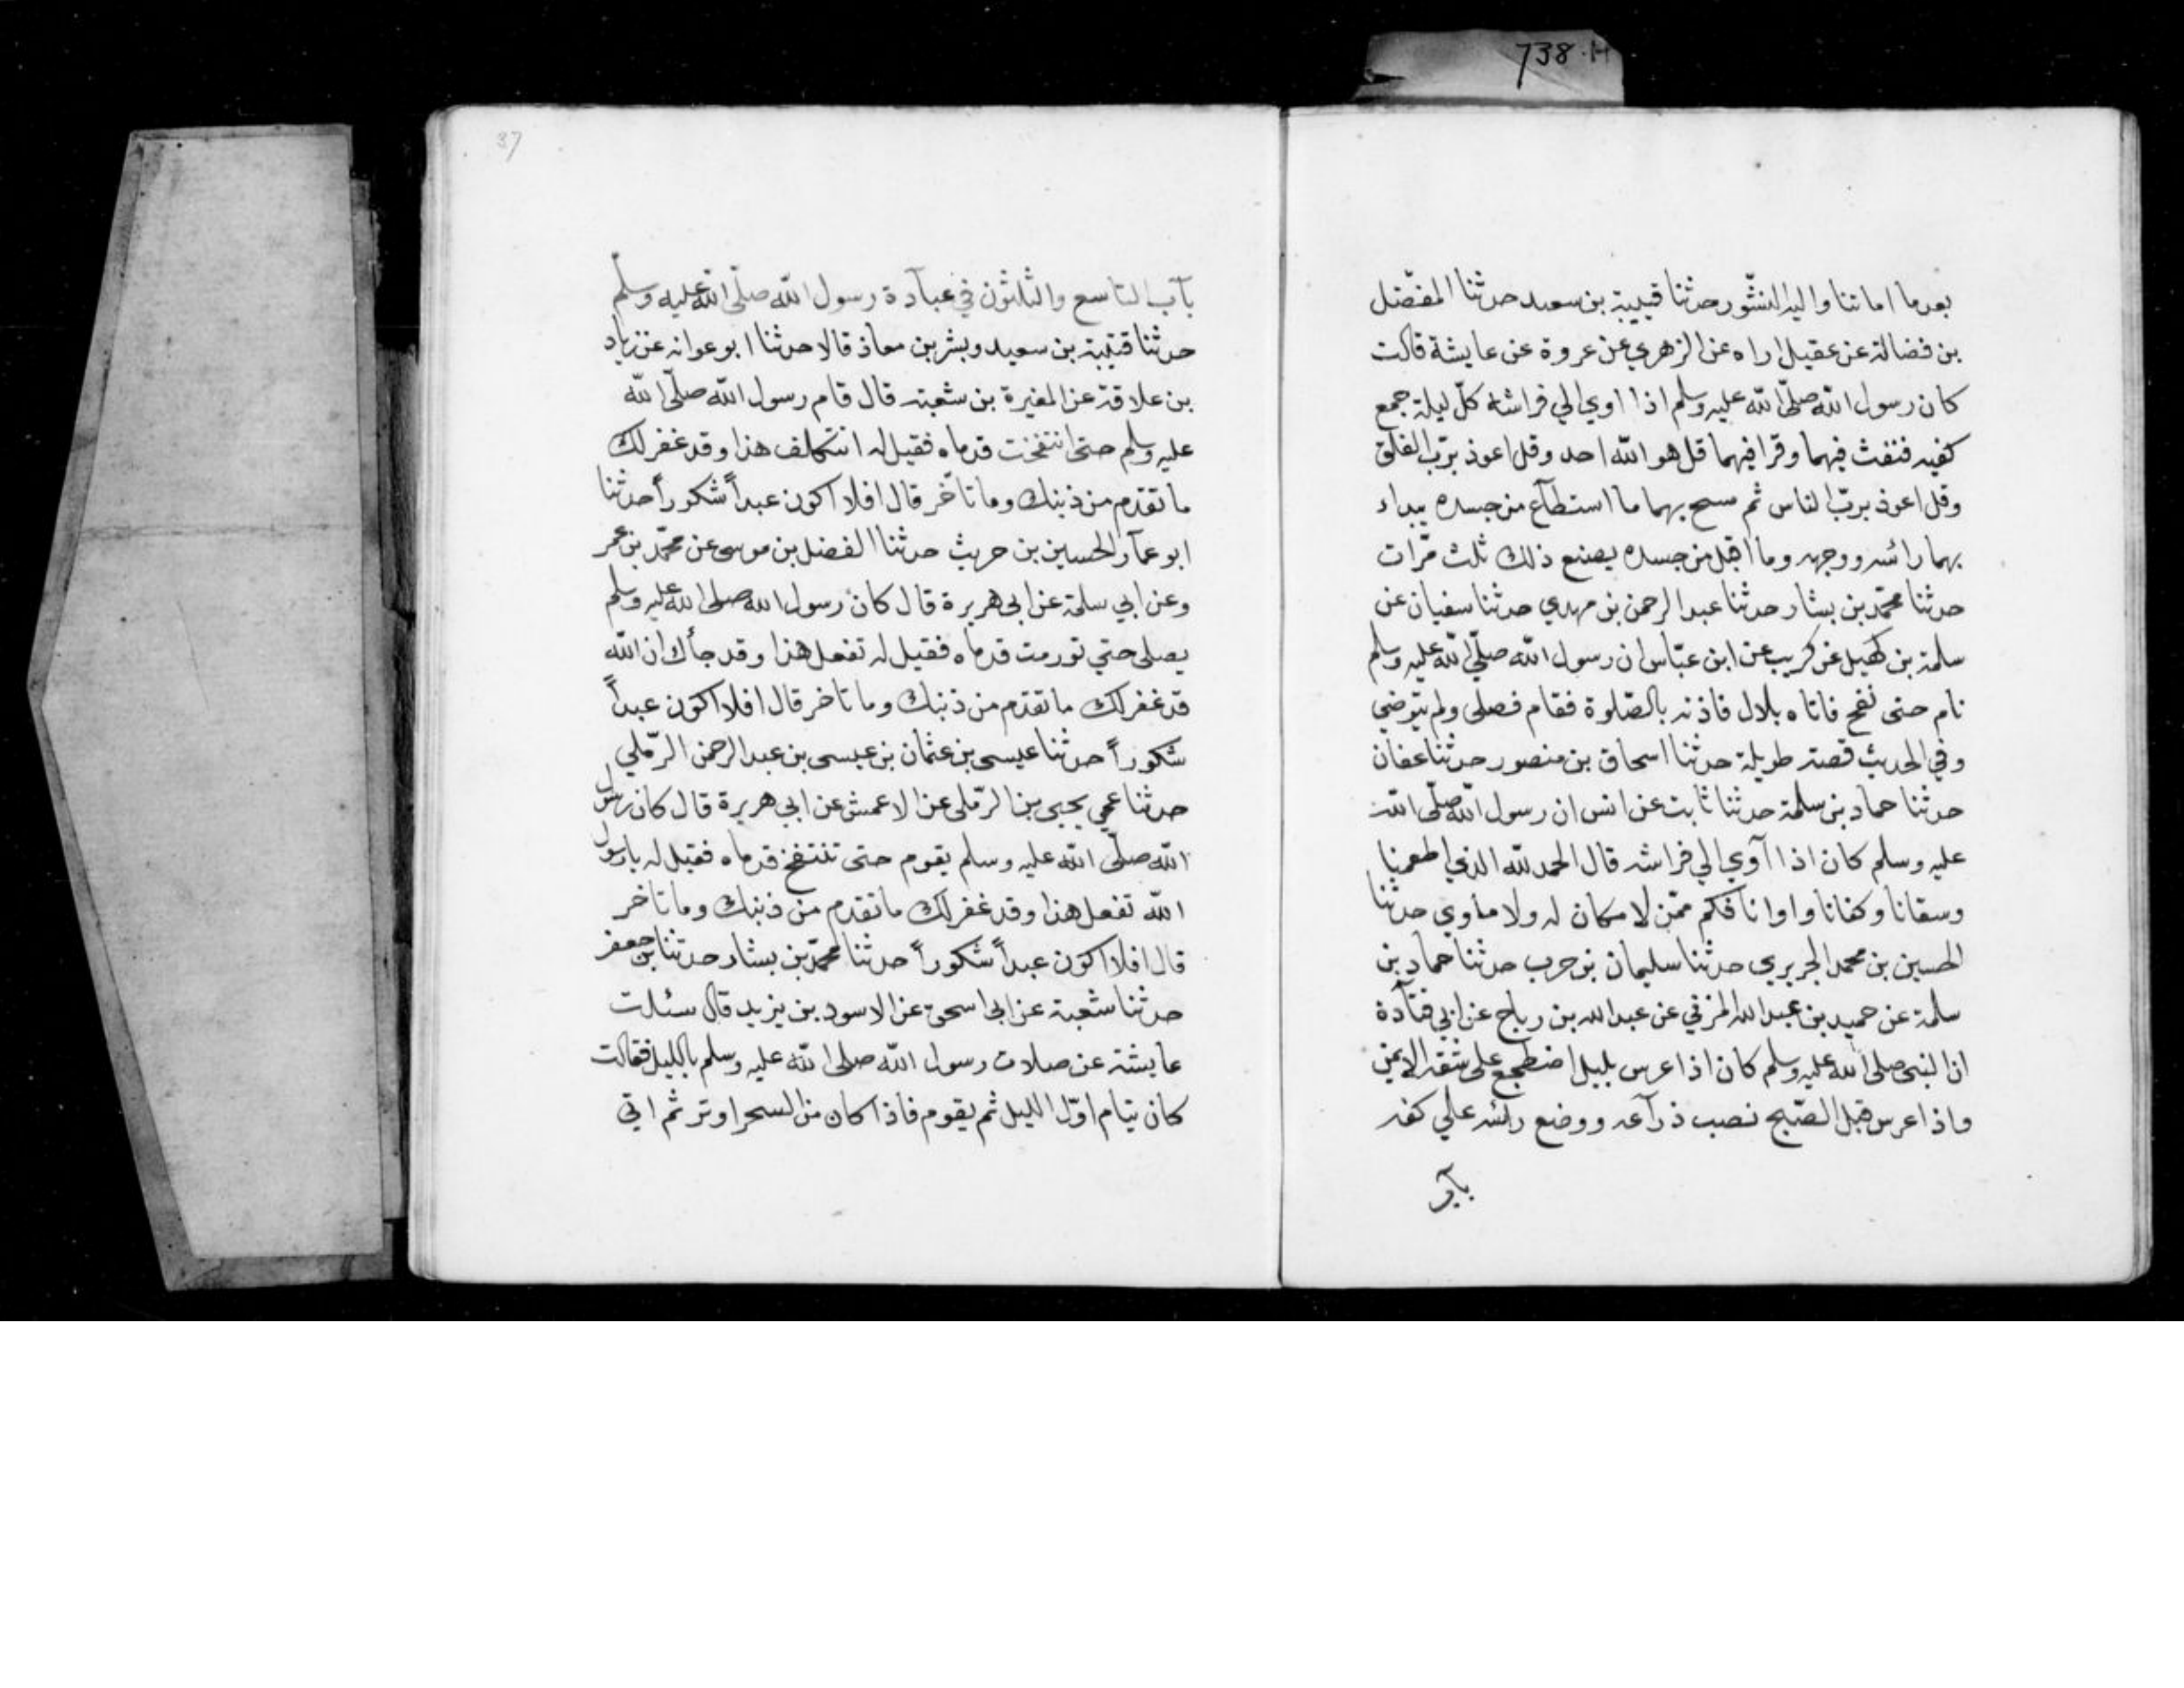 738.H
بعدما اماتنا واليه النشور حدثنا قتيبة بن سعيد حدثنا المفضل
بن فضالة عن عقيل اراه عن الزهري عن عروة عن عايشة قالت
كان رسول الله صلّى الله عليه وسلم اذا اوي الي فراشه كلّ ليلة جمع
كفيه فنفث فيهما وقرا فيهما قل هو الله احد وقل اعوذ بربّ الفلق
وقل اعوذ بربّ الناس ثم مسح بهما ما استطآع من جسده يبداء
بهما رائسه ووجهه وما اقبل من جسده يصنع ذلك ثلث مرّات
حدثنا محمّد بن بشار حدثنا عبد الرحمن بن مهدي حدثنا سفيان عن
سلمة بن كهيل عن كريب عن ابن عبّاس ان رسول الله صلّي الله عليه وسلم
نام حتى نفخ فاتاه بلال فاذنه بالصّلوة فقام فصلى ولم يتوضي
وفي الحديث قصة طويلة حدثنا اسحاق بن منصور حدثنا عفان
حدثنا حماد بن سلمة حدثنا ثابت عن انس ان رسول الله صلّى الله
عليه وسلم كان اذا آوي الي فراشه قال الحمد لله الذي اطعمنا
وسقانا وكفانا واوانا فكم ممّن لا مكان له ولا مأوي حدثنا
الحسين بن محمد الجريري حدثنا سليمان بن حرب حدثنا حماد بن
سلمة عن حميد بن عبد الله المزني عن عبد الله بن رباح عن ابي قتآدة
ان النبي صلى الله عليه وسلم كان اذا عرس بليل اضطجع على شقه الايمن
واذا عرس قبل الصّبح نصب ذرآعه ووضع رائسه علي كفه
بآب
37
بآب التاسع والثلثون في عبآدة رسول الله صلّى الله عليه وسلّم
حدثنا قتيبة بن سعيد وبشر بن معاذ قالا حدثنا ابو عوانه عن زياد
بن علاقة عن المغيرة بن شعبة قال قام رسول الله صلّى الله
عليه وسلم حتى انتفخت قدماه فقيل له اتتكلف هذا وقد غفر لك
ما تقدم من ذنبك وما تأخّر قال افلا اكون عبداً شكوراً حدثنا
ابو عمآر الحسين بن حريث حدثنا الفضل بن موسى عن محمّد بن عمر
وعن ابي سلمة عن ابي هريرة قال كان رسول الله صلى الله عليه وسلم
يصلى حتي تورمت قدماه فقيل له تفعل هذا وقد جأك ان الله
قد غفر لك ما تقدم من ذنبك وما تاخر قال افلا اكون عبداً
شكوراً حدثنا عيسى بن عثمان بن عيسى بن عبد الرحمن الرّملي
حدثنا عمي يحيى بن الرّملى عن الاعمش عن ابي هريرة قال كان رسول
الله صلّى الله عليه وسلم يقوم حتى تنتفخ قدماه فقيل له يا رسول
الله تفعل هذا وقد غفر لك ما تقدم من ذنبك وما تاخر
قال افلا اكون عبداً شكوراً حدثنا محمّد بن بشار حدثنا بن جعفر
حدثنا شعبة عن ابي اسحق عن الاسود بن يزيد قال سئلت
عايشة عن صلات رسول الله صلى الله عليه وسلم بالليل فقالت
كان ينام اوّل الليل ثم يقوم فاذا كان من السحر اوتر ثم اتي